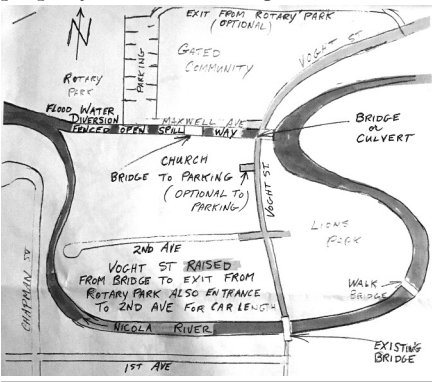 EXIT FROM ROTARY PARK
(OPTIONAL)
N
GATED
COMMUNITY
VOGHT ST
PARKING
ROTARY
PARK
FLOOD WATER
DIVERSION
MAXWELL AVE
FENCED OPEN SPILL WAY
BRIDGE
OR
CULVERT
CHURCH
BRIDGE TO PARKING
(OPTIONAL TO
PARKING)
VOGHT ST
LIONS
PARK
2ND AVE
VOGHT ST RAISED
FROM BRIDGE TO EXIT FROM
ROTARY PARK ALSO ENTRANCE
TO 2ND AVE FOR CAR LENGTH
WALK
BRIDGE
CHAPMAN ST
NICOLA RIVER
EXISTING
BRIDGE
1ST AVE